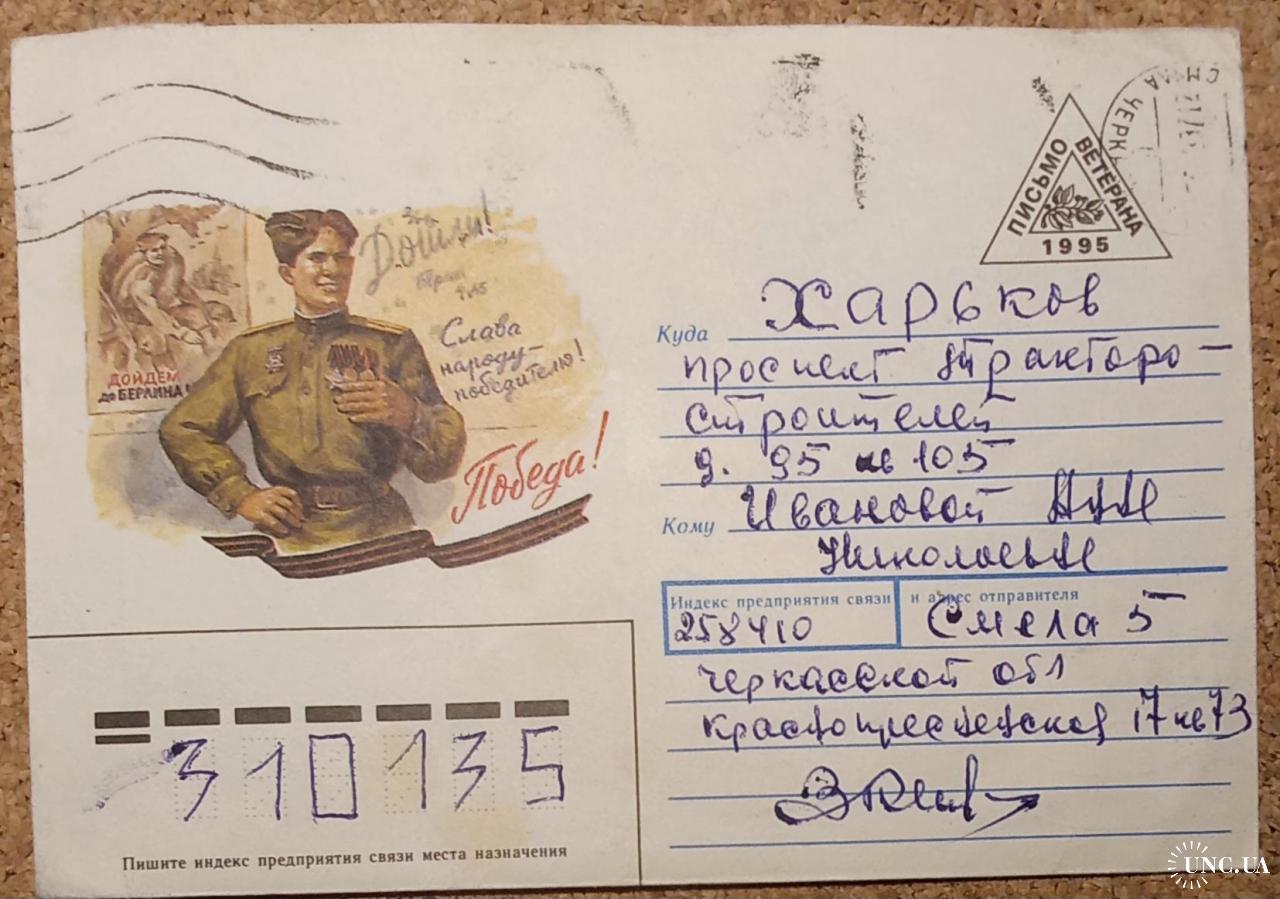 ДОЙДЕМ
до БЕРЛИНА!
Дошли!
Слава
народу-
победителю!
Победа!
ПИСЬМО ВЕТЕРАНА
1995
А ЧЕРК
Куда Харьков
проспект Тракторо-
строителей
д. 95 кв 105
Кому Ивановой
Николаевне
Индекс предприятия связи и адрес отправителя
258410 Смела 5
Черкасской обл
Краснопресненская 17 кв 73
310135
Пишите индекс предприятия связи места назначения
UNC.UA